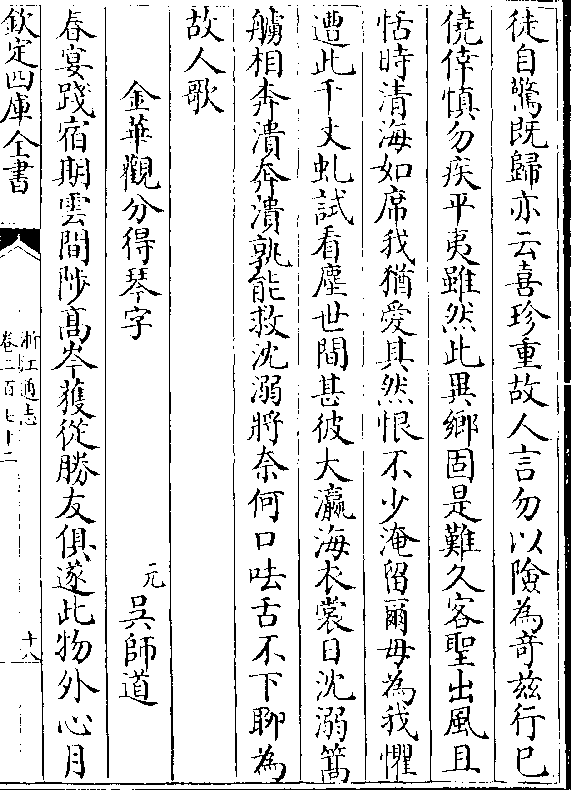 徒自驚既歸亦云喜珍重故人言勿以險為竒兹行已
僥倖慎勿疾平夷雖然此異鄉固是難久客聖出風且
恬時清海如席我猶愛其然恨不少淹留爾毋為我懼
遭此千丈虬試看塵世間甚彼大瀛海衣裳日沈溺篙
艣相奔潰奔潰孰能救沈溺將奈何口呿舌不下聊為
故人歌
金華觀分得琴字
元吳師道
春宴踐宿期雲間陟髙岑獲從勝友俱遂此物外心月
欽定四庫全書
浙江通志
卷二百七十二
十八